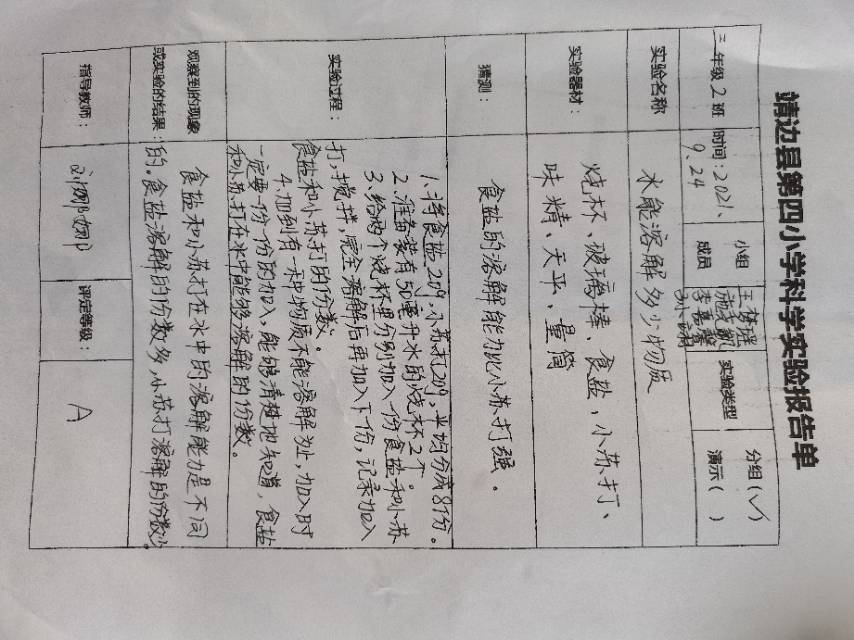 靖边县第四小学科学实验报告单
三 年级 2 班
时间：2021、
9、24
小组
成员
李嘉馨
实验类型
分组（√）
演示（ ）
实验名称
水能溶解多少物质
实验器材：
烧杯、玻璃棒、食盐、小苏打、
味精、天平、量筒
猜测：
食盐的溶解能力比小苏打强。
实验过程：
1、将食盐20g，小苏打20g，平均分成8份。
2、准备装有50毫升水的烧杯2个。
3、给两个烧杯里分别加入一份食盐和小苏
打，搅拌，完全溶解后再加入下一份，记录加入
食盐和小苏打的份数。
4、加到有一种物质不能溶解为止，加入时
一定要一份一份的加入，能够清楚地知道，食盐
和小苏打在水中能够溶解的份数。
观察到的现象
或实验的结果：
食盐和小苏打在水中的溶解能力是不同
的。食盐溶解的份数多，小苏打溶解的份数少。
指导教师：
评定等级：
A